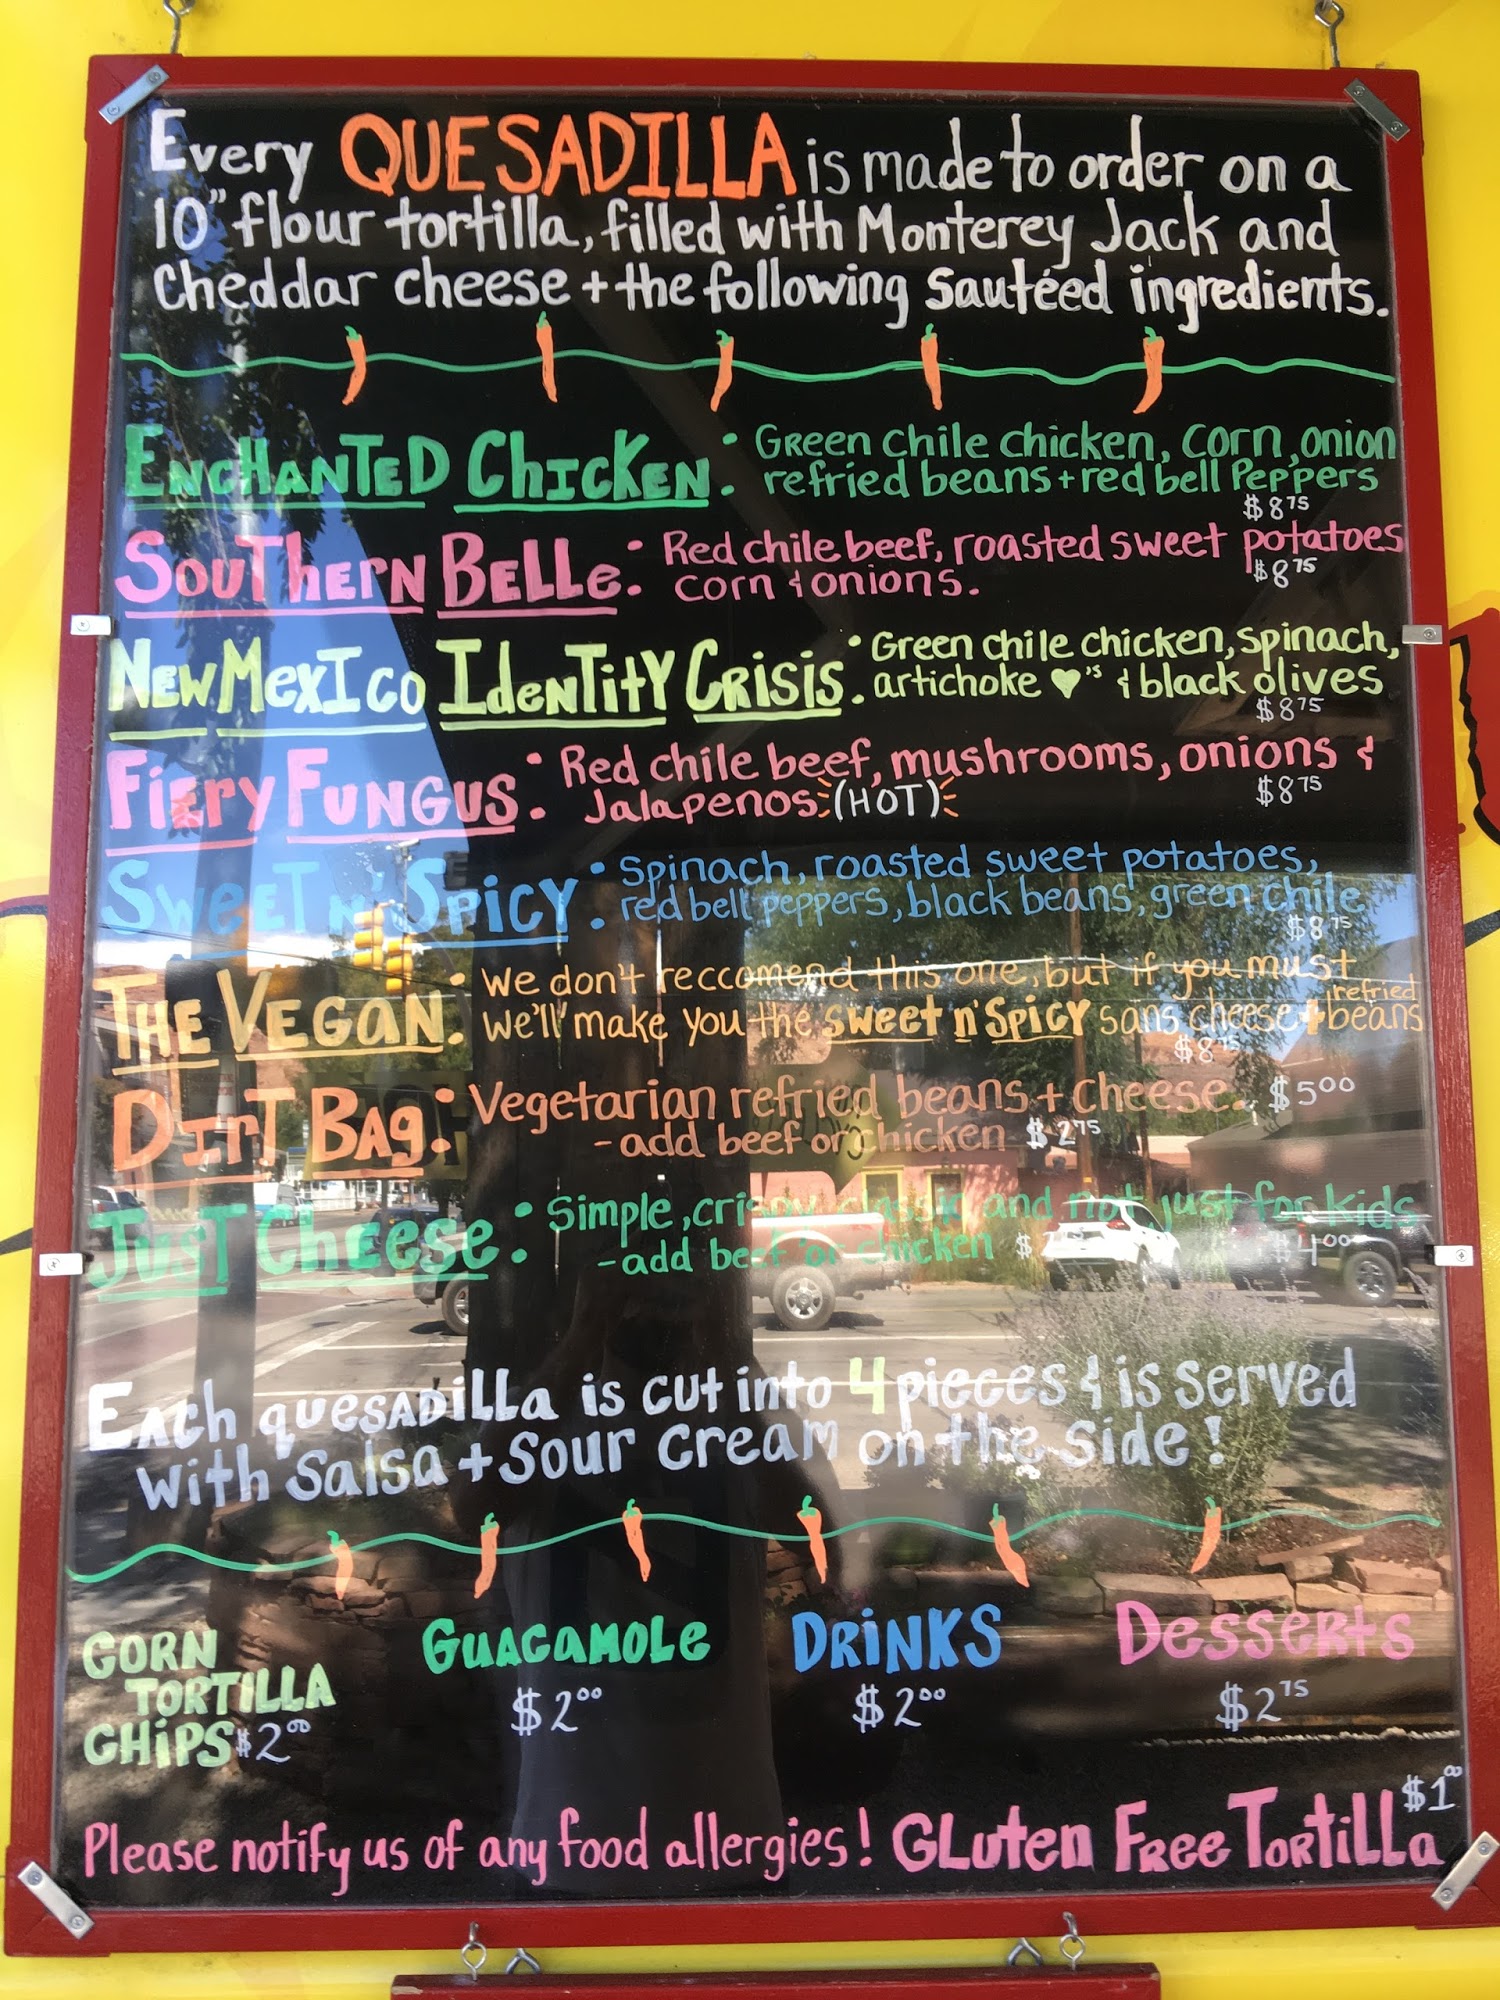 Every QUESADILLA is made to order on a
10" flour tortilla, filled with Monterey Jack and
Cheddar cheese + the following Sautéed ingredients.
ENCHANTED CHICKEN: Green chile chicken, corn, onion
refried beans + red bell Peppers
$8.75
SOUTHERN BELLE: Red chile beef, roasted sweet potatoes
corn & onions.
$8.75
NEW MEXICO IDENTITY CRISIS: Green chile chicken, spinach,
artichoke ♥'s & black olives
$8.75
FIERY FUNGUS: Red chile beef, mushrooms, onions &
Jalapenos (HOT)
$8.75
SWEET N' SPICY: Spinach, roasted sweet potatoes,
red bell peppers, black beans, green chile
$8.75
THE VEGAN: We don't reccomend this one, but if you must
We'll make you the sweet n' spicy sans cheese + refried beans
$8.75
DIRT BAG: Vegetarian refried beans + cheese. $5.00
-add beef or chicken $2.75
JUST CHEESE: Simple, crispy, classic and not just for kids
-add beef or chicken $ $4.00
Each quesadilla is cut into 4 pieces & is served
with Salsa + Sour Cream on the Side!
CORN
TORTILLA
CHIPS $2.00
GUACAMOLE
$2.00
DRINKS
$2.00
Desserts
$2.75
Please notify us of any food allergies! GLuten Free Tortilla $1.00